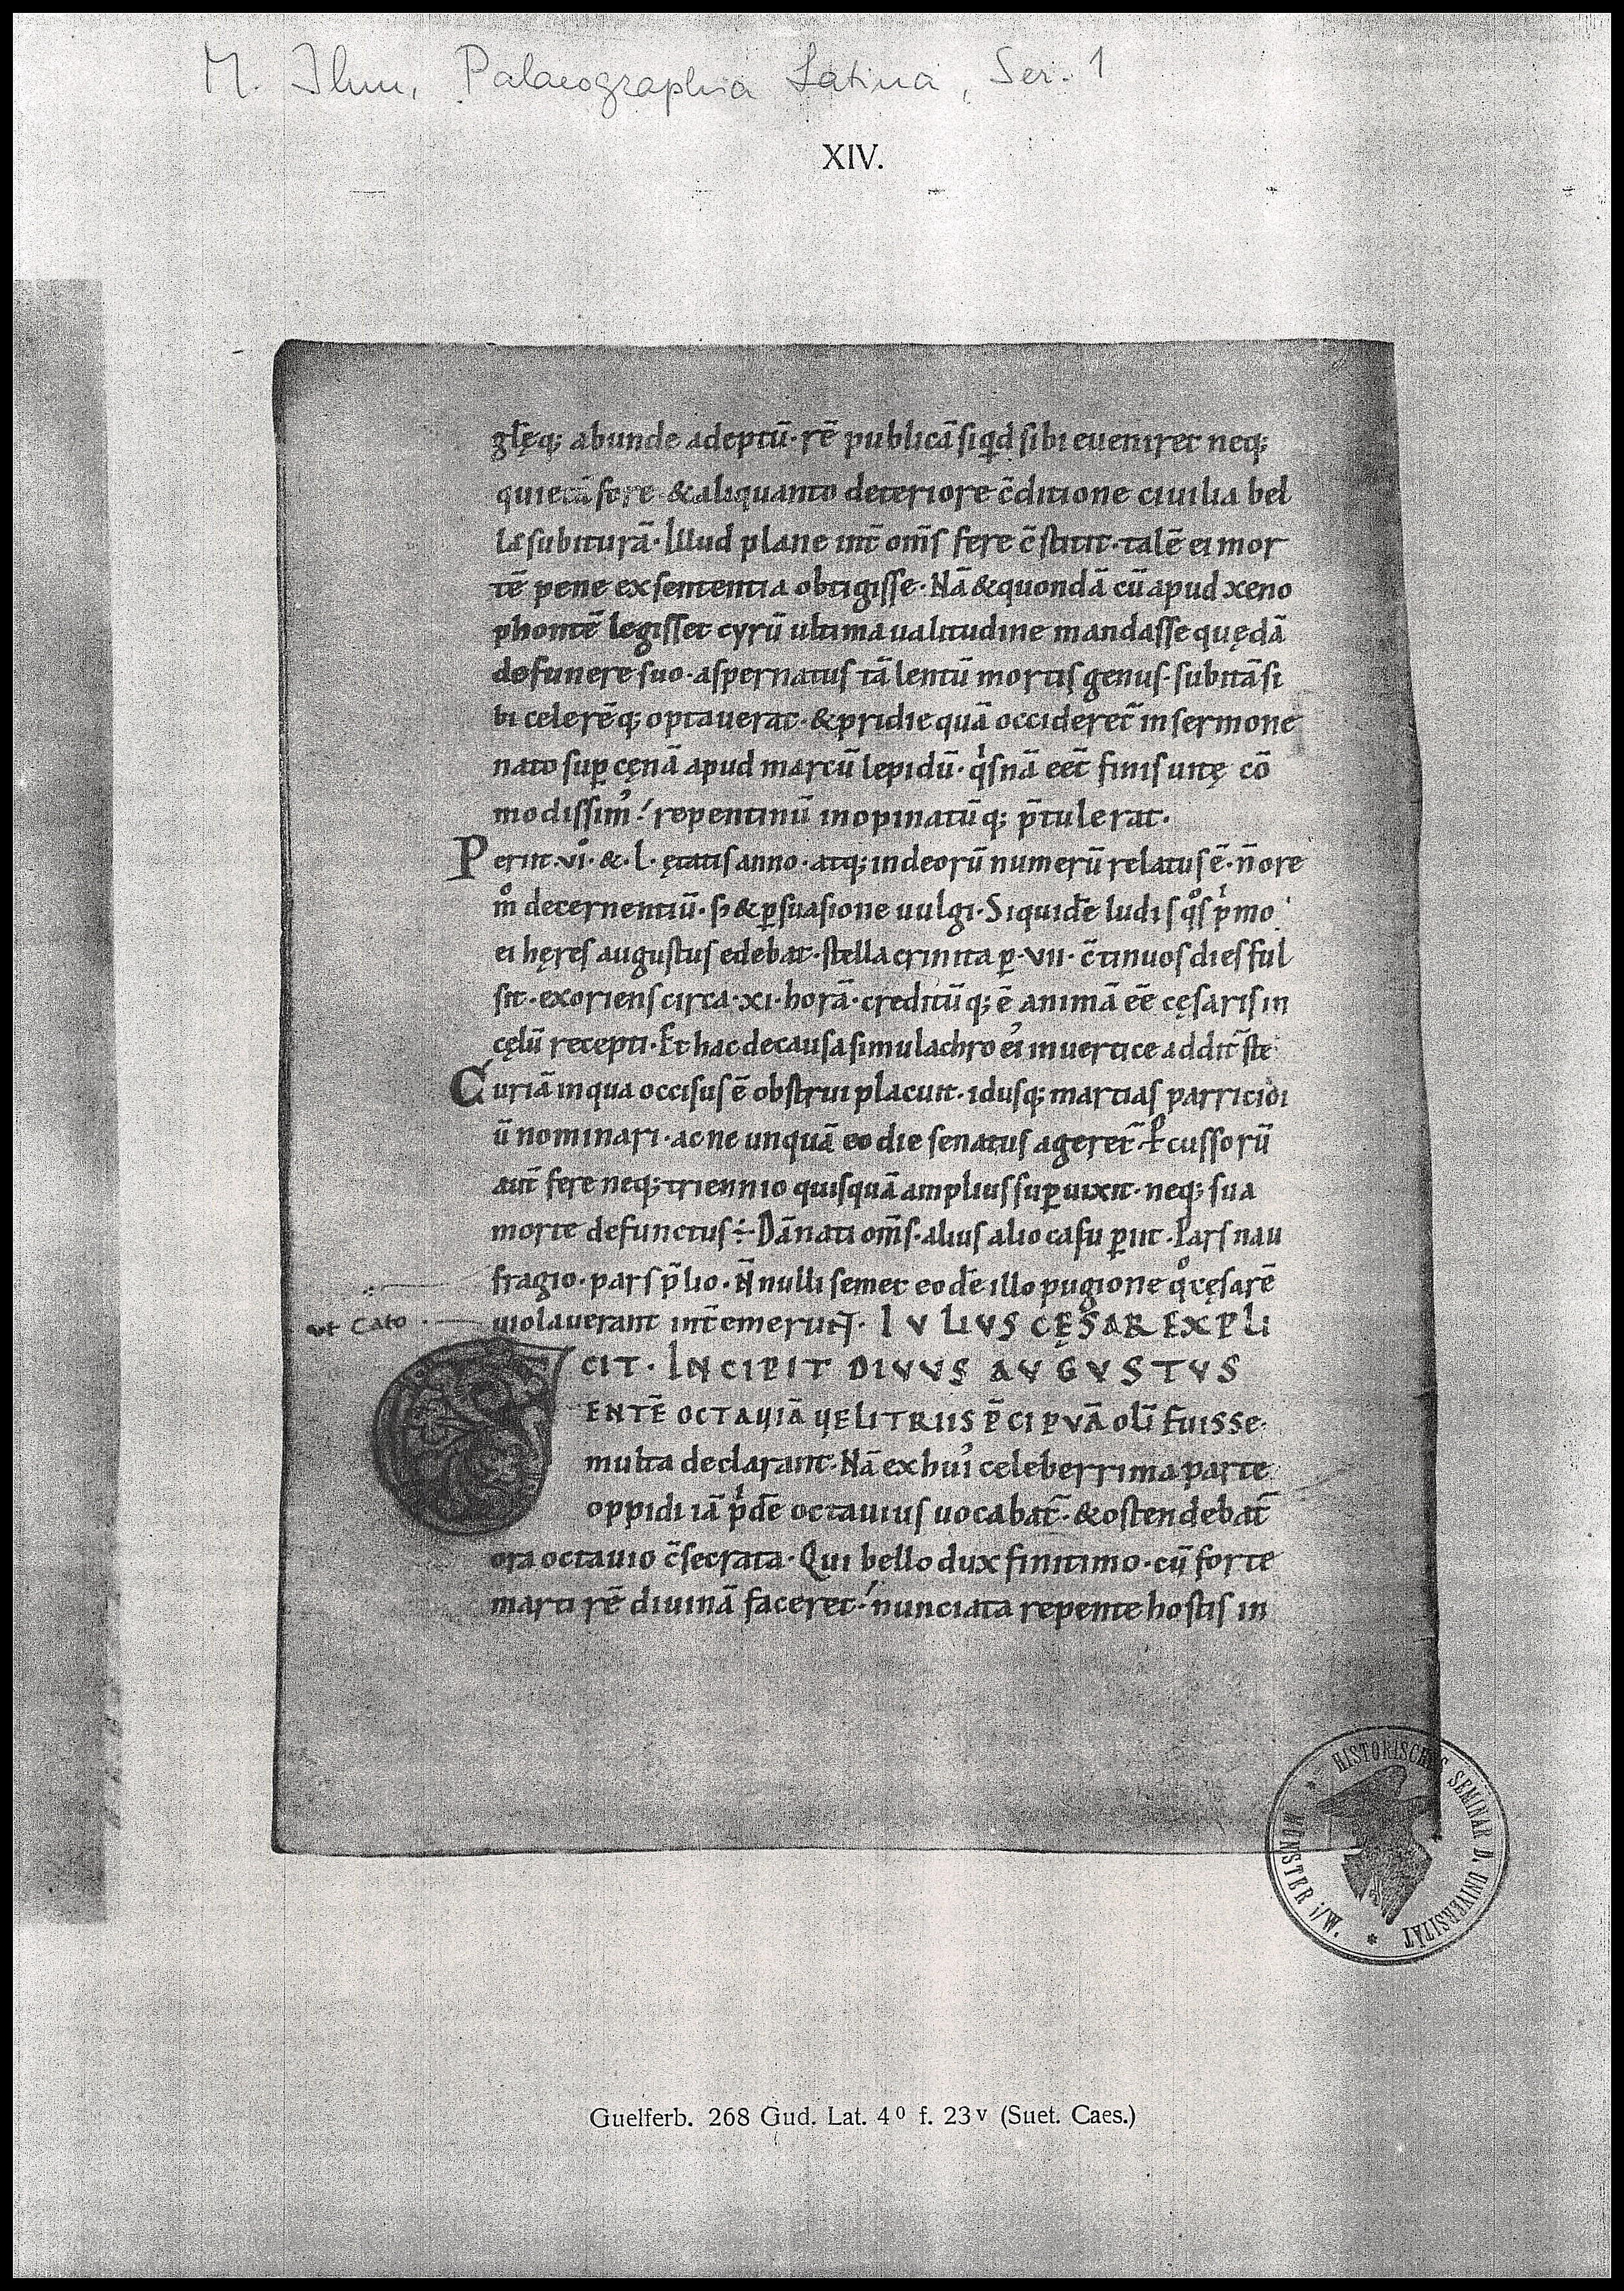 M. Ihm, Palaeographia Latina, Ser. 1
XIV.
gl̄ęq; abunde adeptū · rē publicā siqd sibi eueniret neq;
quietā fore · & aliquanto deteriore c̄ditione ciuilia bel
la subiturā · Illud plane int̄ om̄s fere c̄stitit · talē ei mor
tē pene ex sententia obtigisse · Nā & quondā cū apud xeno
phontē legisset cyrū ultima ualitudine mandasse quędā
de funere suo · aspernatus tā lentū mortis genus · subitā si
bi celerēq; optauerat · & pridie quā occideret̄ in sermone
nato sup̱ cęnā apud marcū lepidū · qͥsnā eet̄ finis uitę cō
modissim᾿ repentinū inopinatūq; p̄tulerat ·
Periit · vi · & · l · ętatis anno · atq; in deorū numerū relatus ē · n̄ ore
m̊ decernentiū · sꝫ & ꝑsuasione uulgi · Siquidē ludis qͦs pͥmo
ei hęres augustus edebat · stella crinita ꝑ · vii · c̄tinuos dies ful
sit · exoriens circa · xi · horā · creditūq; ē animā eē cęsaris in
cęlū recepti · Et hac de causa simulachro ei᾿ in uertice addit̄ stę
Curiā in qua occisus ē obstrui placuit · idusq; martias parricidi
ū nominari · ac ne unquā eo die senatus ageret̄ · Ꝑcussorū
aut̄ fere neq; triennio quisquā amplius suꝑuixit · neq; sua
morte defunctus ÷ Dānati om̄s · alius alio casu ꝑiit · Pars nau
fragio · pars p̄lio · N̄nulli semet eodē illo pugione qͦ cęsarē
ut Cato
uiolauerant int̄emerunt · IVLIVS CĘSAR EXPLI
CIT · INCIPIT DIVVS AVGVSTVS
GENTĒ OCTAUIĀ UELITRIIS P̄CIPVĀ oli᷃ fuisse
multa declarant · Nā ex hui᾿ celeberrima parte
oppidi iā pͥdē octauius uocabat̄ · & ostendebat̄
ora octauio c̄secrata · Qui bello dux finitimo · cū forte
marti rē diuinā faceret · nunciata repente hostis in
HISTORISCHES SEMINAR D. UNIVERSITÄT * MÜNSTER i/W. *
Guelferb. 268 Gud. Lat. 4⁰ f. 23ᵛ (Suet. Caes.)